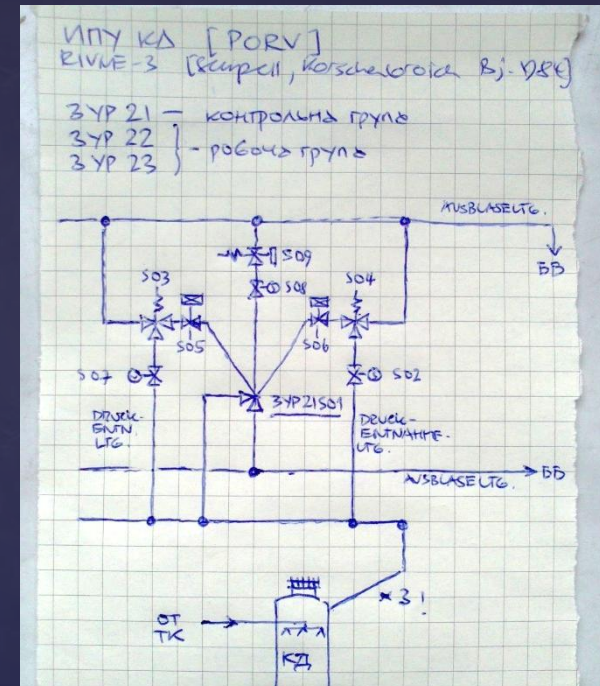 ИПУ КД [PORV]
RIVNE-3 [Sempell, Korschenbroich Bj.
3YP 21 – контрольна група
3YP 22
3YP 23 } - робоча група
AUSBLASELTG.
ББ
S09
S03
S08
S04
S05
S06
S07
S02
3YP21S01
DRUCK-
ENTN.
LTG.
DRUCK-
ENTNAHME-
LTG.
ББ
AUSBLASELTG.
× 3!
ОТ
ТК
КД